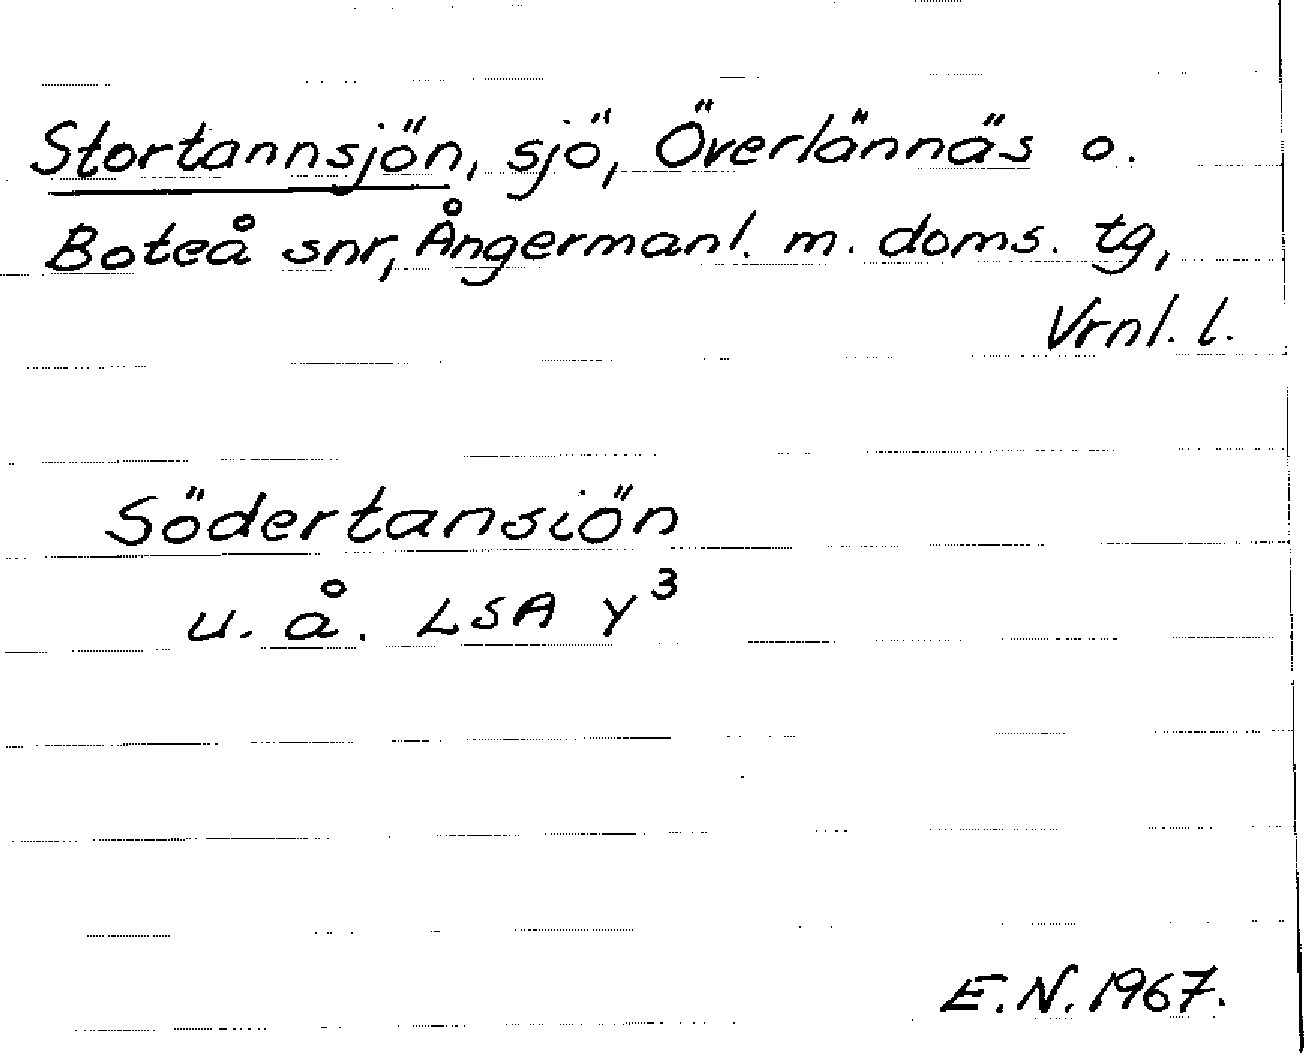 Stortannsjön, sjö, Överlännäs o.
Boteå snr, Ångermanl. m. doms. tg,
Vrnl. l.
Södertansiön
u. å. LSA Y³
E.N. 1967.